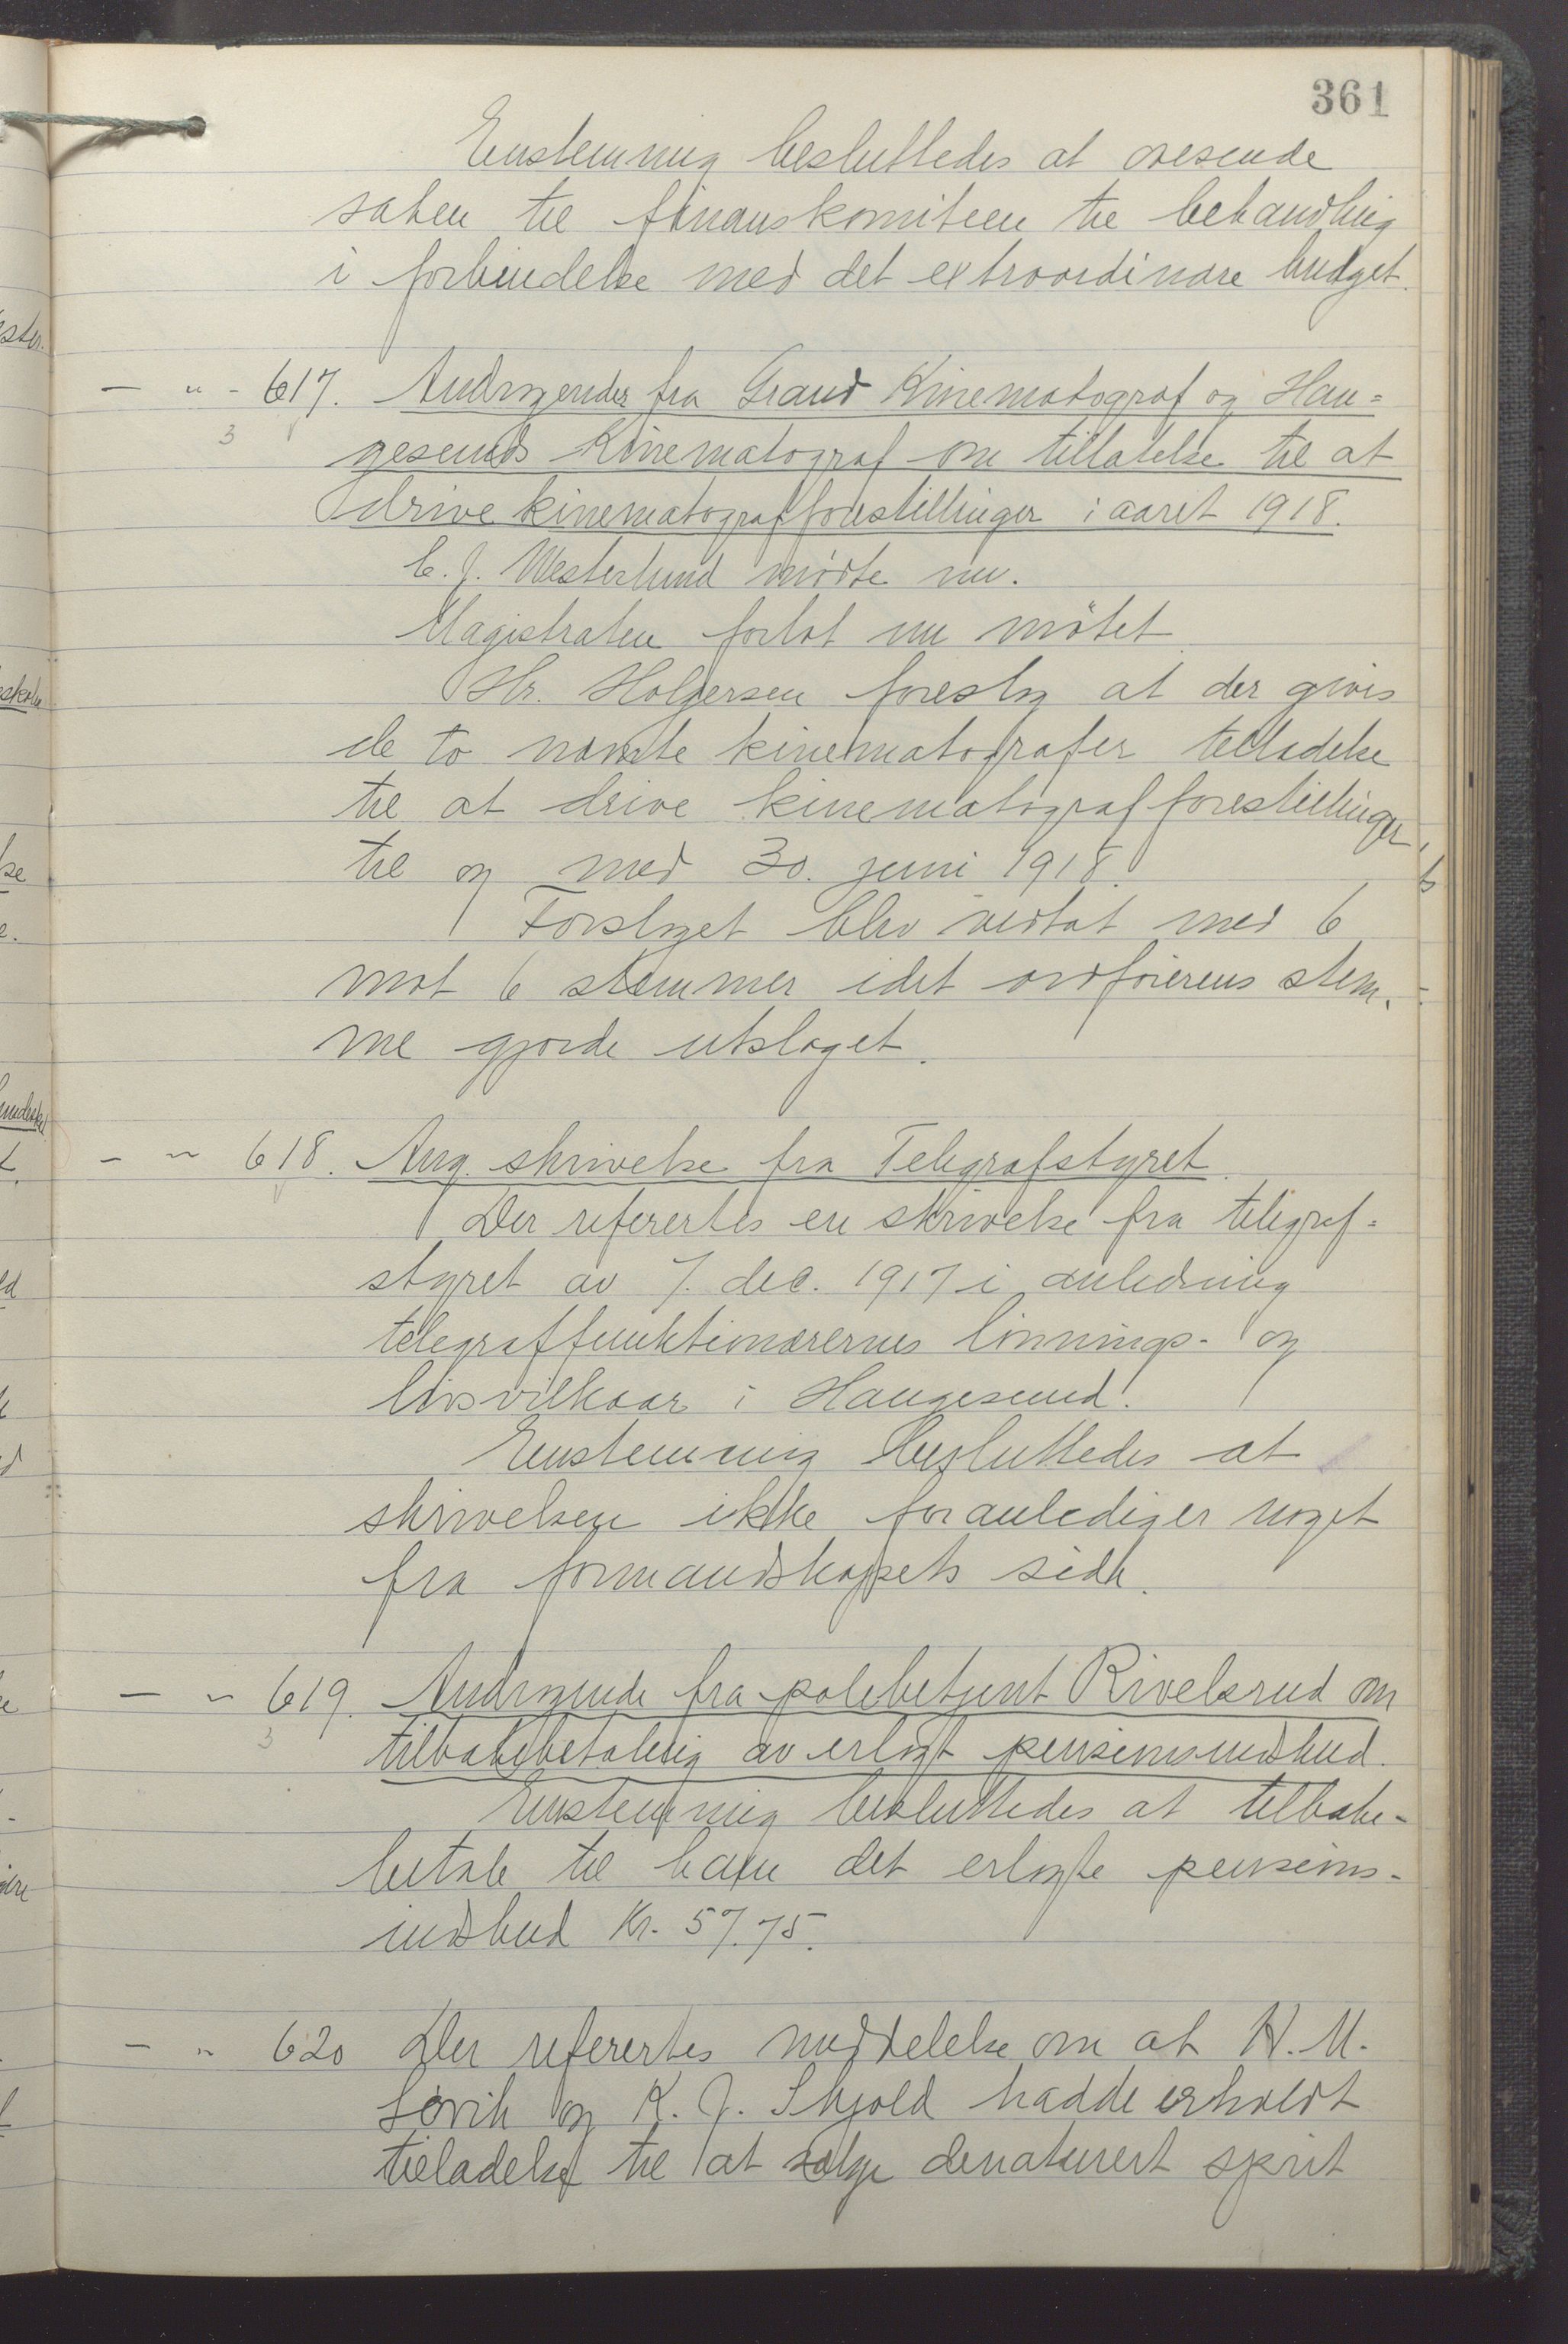 361
Enstemmig besluttedes at overende
saken til finanskomiteen til behandling
i forbindelse med det extraordinære budget.
— " - 617. Andragender fra Grand Kinematograf og Hau=
3
gesunds Kinematograf om tillatelse til at
drive kinematografforestillinger i aaret 1918.
C. J. Westerlund mødte nu.
Magistraten forlot nu møtet
Hr. Holgersen foreslog at der gives
de to nævnte kinematografer tilladelse
til at drive kinematografforestillinger
til og med 30. juni 1918.
Forslaget blev vedtat med 6
mot 6 stemmer idet ordførerens stem-
me gjorde utslaget.
— " 618. Ang. skrivelse fra Telegrafstyret.
Der refertes en skrivelse fra telegraf=
styret av 7. dec. 1917 i anledning
telegraffunktionærernes lønnings- og
livsvilkaar i Haugesund.
Enstemmig besluttedes at
skrivelsen ikke foranlediger noget
fra formandskapets side.
— " 619. Andragende fra polebetjent Rivelsrud om
3
tilbakebetaling av erlagt pensionsindskud.
Enstemmig besluttedes at tilbake-
betale til ham det erlagte pensions-
indskud Kr. 57.75.
— " 620 Der refertes meddelelse om at H. M.
Søvik og K. J. Skjold hadde erholdt
tilladelse til at sælge denaturert sprit